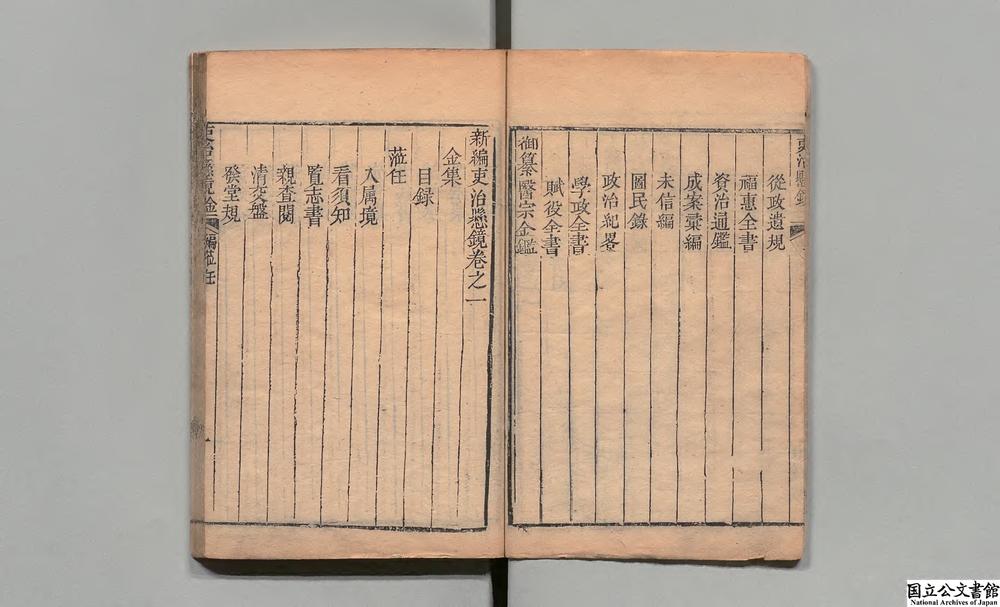 吏治懸鏡
從政遺規
福惠全書
資治通鑑
成案彙編
未信編
圖民錄
政治紀畧
學政全書
賦役全書
御纂醫宗金鑑
新編吏治懸鏡卷之一
金集
目録
蒞任
入属境
看須知
覧志書
親查閱
清交盤
發堂規
国立公文書館
National Archives of Japan